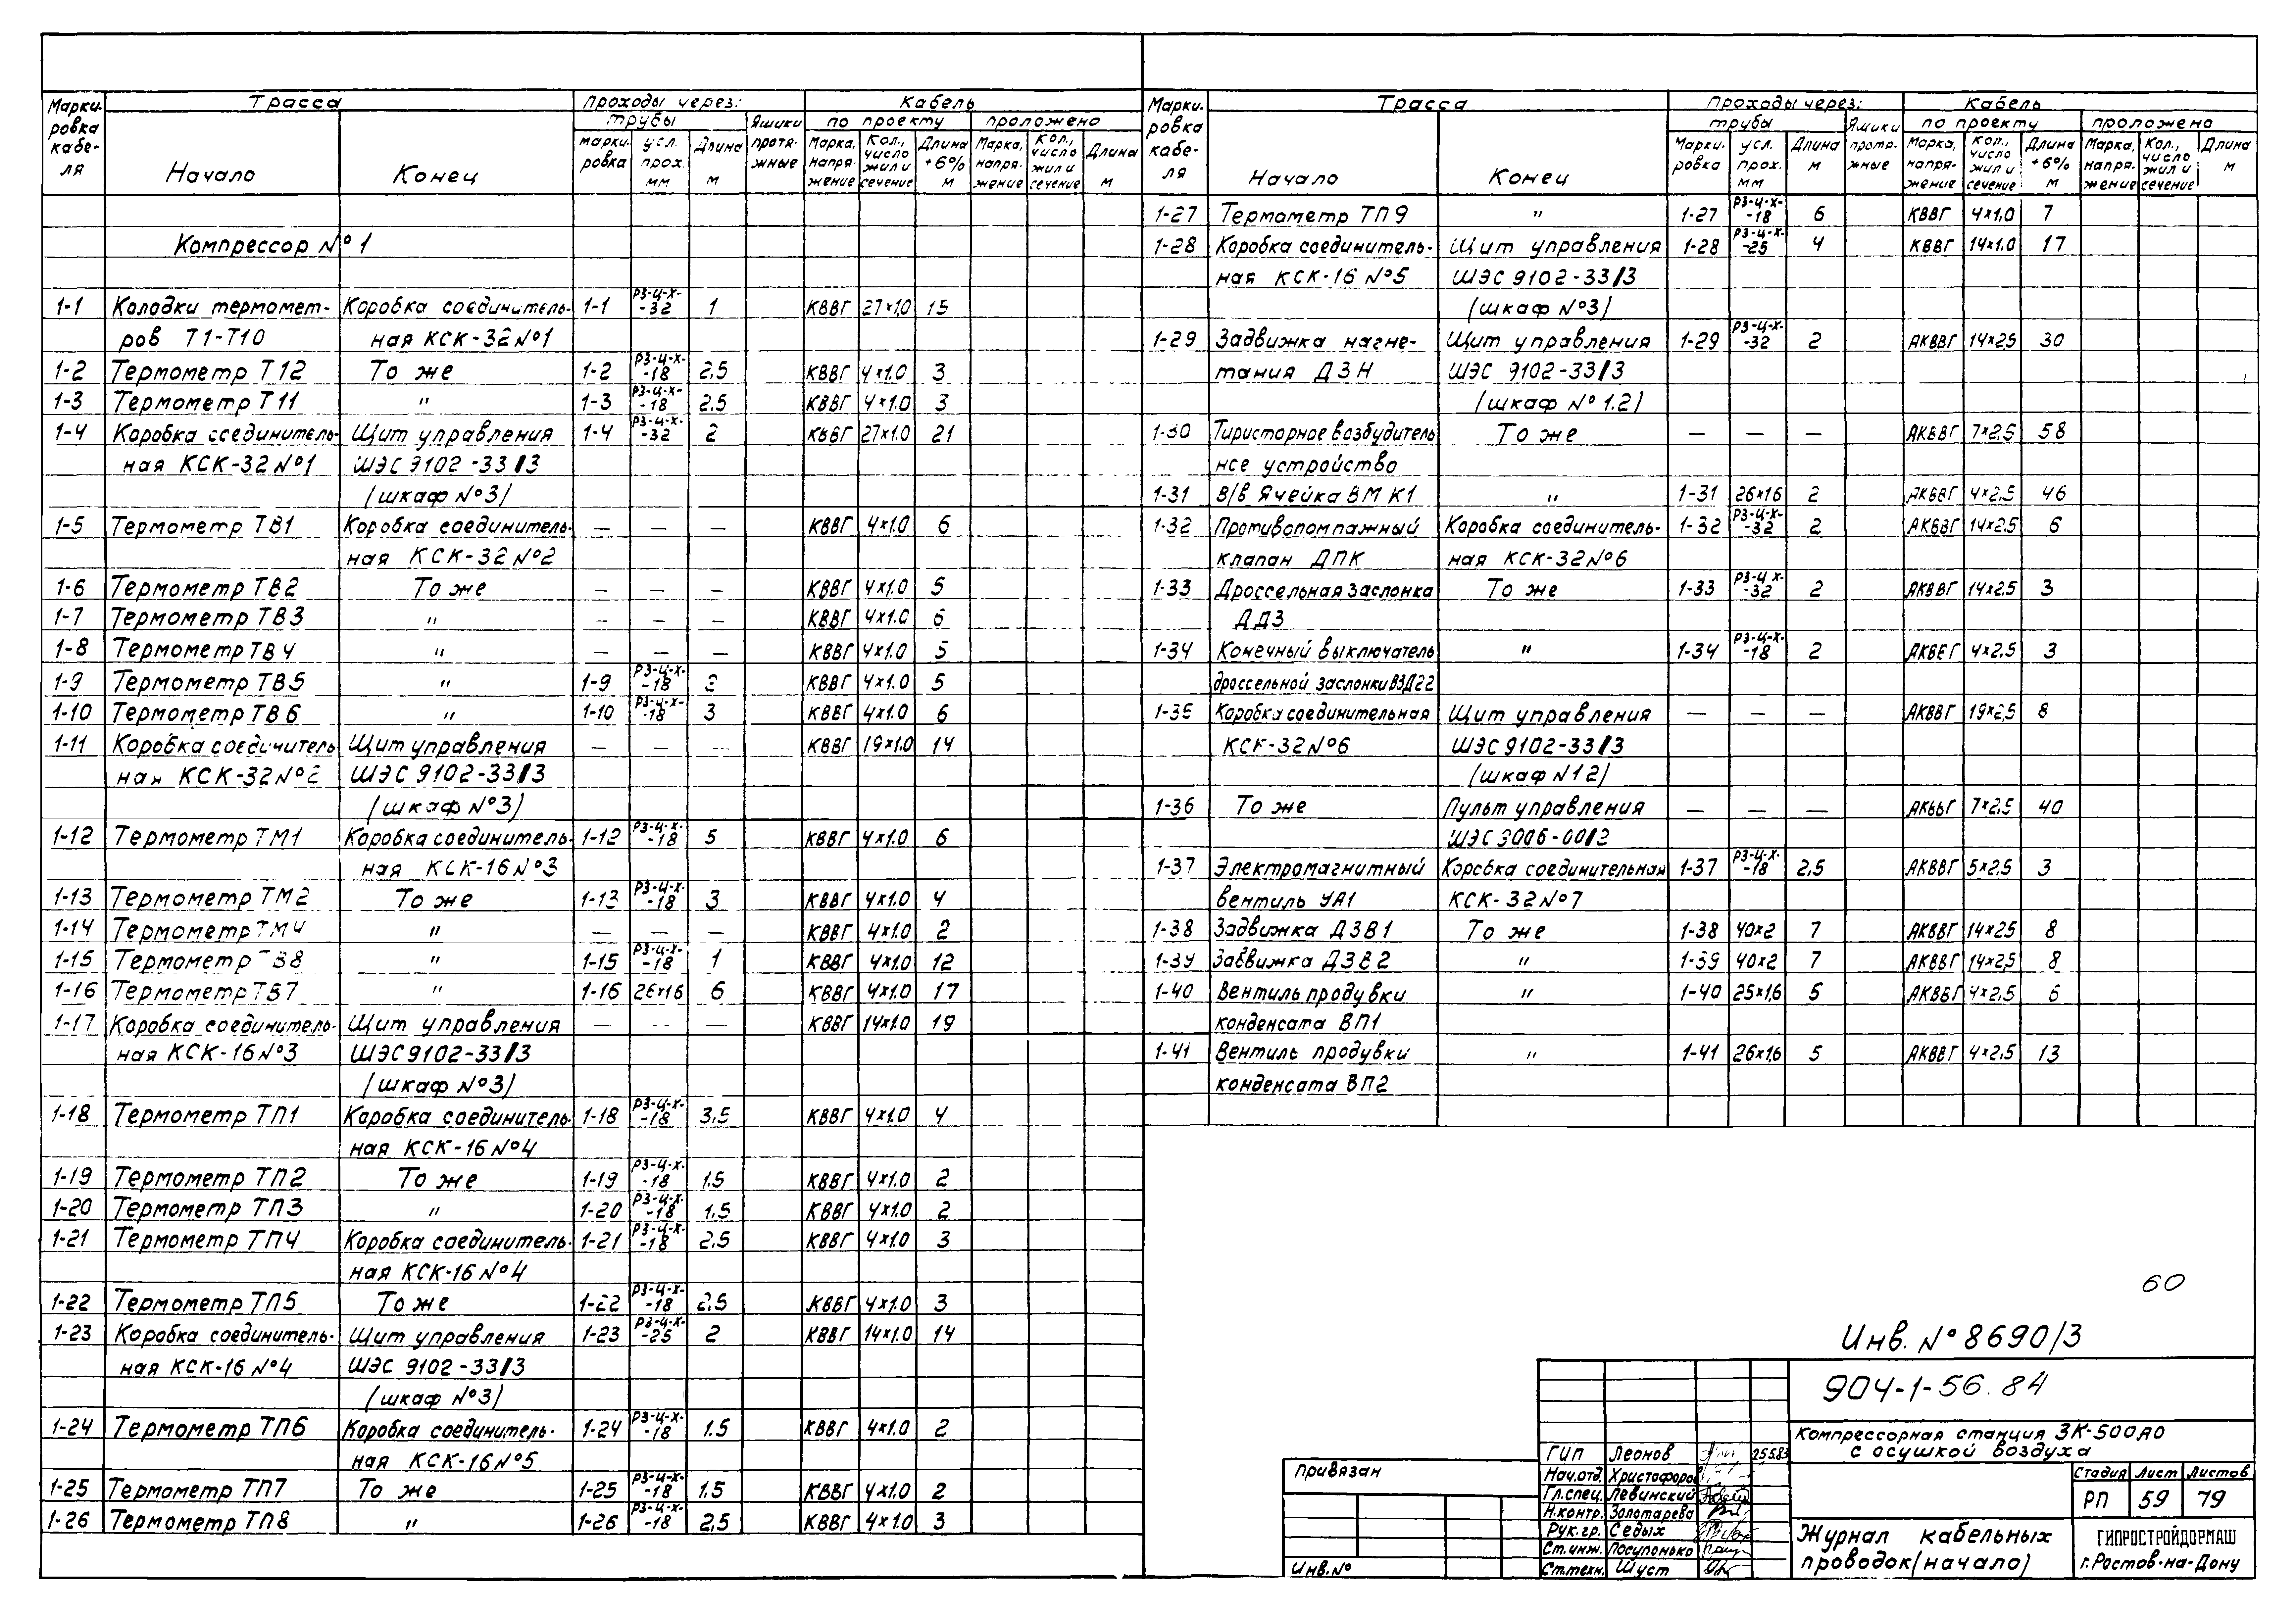 Марки- Трасса Проходы через: Кабель
ровка трубы Ящики по проекту проложено
кабе- марки- усл. Длина протя- Марка, Кол., Длина Марка, Кол., Длина
ля Начало Конец ровка прох. мм м жные напря- число +6% напря- число м
жение жил и сечение м жение жил и сечение
Компрессор №1
1-1 Колодки термомет- Коробка соединитель- 1-1 РЗ-Ц-Х-32 1 КВВГ 27×1,0 15
ров Т1-Т10 ная КСК-32 №1
1-2 Термометр Т12 То же 1-2 РЗ-Ц-Х-18 2,5 КВВГ 4×1.0 3
1-3 Термометр Т11 " 1-3 РЗ-Ц-Х-18 2,5 КВВГ 4×1.0 3
1-4 Коробка соединитель- Щит управления 1-4 РЗ-Ц-Х-32 2 КВВГ 27×1.0 21
ная КСК-32 №1 ШЭС 9102-33/3
(шкаф №3)
1-5 Термометр ТВ1 Коробка соединитель- — — — КВВГ 4×1.0 6
ная КСК-32 №2
1-6 Термометр ТВ2 То же — — — КВВГ 4×1.0 5
1-7 Термометр ТВ3 " — — — КВВГ 4×1.0 6
1-8 Термометр ТВ4 " — — — КВВГ 4×1.0 5
1-9 Термометр ТВ5 " 1-9 РЗ-Ц-Х-18 КВВГ 4×1.0 5
1-10 Термометр ТВ6 " 1-10 РЗ-Ц-Х-18 3 КВВГ 4×1.0 6
1-11 Коробка соединитель Щит управления — — — КВВГ 19×1.0 14
ная КСК-32 №2 ШЭС 9102-33/3
(шкаф №3)
1-12 Термометр ТМ1 Коробка соединитель- 1-12 РЗ-Ц-Х-18 5 КВВГ 4×1.0 6
ная КСК-16 №3
1-13 Термометр ТМ2 То же 1-13 РЗ-Ц-Х-18 3 КВВГ 4×1.0 4
1-14 Термометр ТМ4 " — — — КВВГ 4×1.0 2
1-15 Термометр ТВ8 " 1-15 РЗ-Ц-Х-18 1 КВВГ 4×1.0 12
1-16 Термометр ТВ7 " 1-16 26×16 6 КВВГ 4×1.0 17
1-17 Коробка соединитель- Щит управления — — — КВВГ 14×1.0 19
ная КСК-16 №3 ШЭС 9102-33/3
(шкаф №3)
1-18 Термометр ТП1 Коробка соединитель- 1-18 РЗ-Ц-Х-18 3,5 КВВГ 4×1.0 4
ная КСК-16 №4
1-19 Термометр ТП2 То же 1-19 РЗ-Ц-Х-18 1.5 КВВГ 4×1.0 2
1-20 Термометр ТП3 " 1-20 РЗ-Ц-Х-18 1,5 КВВГ 4×1.0 2
1-21 Термометр ТП4 Коробка соединитель- 1-21 РЗ-Ц-Х-18 2.5 КВВГ 4×1.0 3
ная КСК-16 №4
1-22 Термометр ТП5 То же 1-22 РЗ-Ц-Х-18 2.5 КВВГ 4×1.0 3
1-23 Коробка соединитель- Щит управления 1-23 РЗ-Ц-Х-25 2 КВВГ 14×1.0 14
ная КСК-16 №4 ШЭС 9102-33/3
(шкаф №3)
1-24 Термометр ТП6 Коробка соединитель- 1-24 РЗ-Ц-Х-18 1.5 КВВГ 4×1.0 2
ная КСК-16 №5
1-25 Термометр ТП7 То же 1-25 РЗ-Ц-Х-18 1.5 КВВГ 4×1.0 2
1-26 Термометр ТП8 " 1-26 РЗ-Ц-Х-18 2,5 КВВГ 4×1.0 3
Марки- Трасса Проходы через: Кабель
ровка трубы Ящики по проекту проложено
кабе- Марки- усл. Длина протя- Марка, Кол., Длина Марка, Кол., Длина
ля Начало Конец ровка прох. мм м жные напря- число +6% напря- число м
жение жил и сечение м жение жил и сечение
1-27 Термометр ТП9 " 1-27 РЗ-Ц-Х-18 6 КВВГ 4×1,0 7
1-28 Коробка соединитель- Щит управления 1-28 РЗ-Ц-Х-25 4 КВВГ 14×1.0 17
ная КСК-16 №5 ШЭС 9102-33/3
(шкаф №3)
1-29 Задвижка нагне- Щит управления 1-29 РЗ-Ц-Х-32 2 АКВВГ 14×2.5 30
тания ДЗН ШЭС 9102-33/3
(шкаф №1.2)
1-30 Тиристорное возбудитель То же — — — АКВВГ 7×2,5 58
ное устройство
1-31 В/в Ячейка ВМ К1 " 1-31 26×16 2 АКВВГ 4×2,5 46
1-32 Противопомпажный Коробка соединитель- 1-32 РЗ-Ц-Х-32 2 АКВВГ 14×2,5 6
клапан ДПК ная КСК-32 №6
1-33 Дроссельная заслонка То же 1-33 РЗ-Ц Х-32 2 АКВВГ 14×2.5 3
ДДЗ
1-34 Конечный выключатель " 1-34 РЗ-Ц-Х-18 2 АКВВГ 4×2,5 3
дроссельной заслонки ВЗД22
1-35 Коробка соединительная Щит управления — — — АКВВГ 19×2,5 8
КСК-32 №6 ШЭС 9102-33/3
(шкаф N12)
1-36 То же Пульт управления — — — АКВВГ 7×2.5 40
ШЭС 9006-00/2
1-37 Электромагнитный Коробка соединительная 1-37 РЗ-Ц-Х-18 2,5 АКВВГ 5×2,5 3
вентиль УА1 КСК-32 №7
1-38 Задвижка ДЗВ1 То же 1-38 40×2 7 АКВВГ 14×2.5 8
1-39 Задвижка ДЗВ2 " 1-39 40×2 7 АКВВГ 14×2,5 8
1-40 Вентиль продувки " 1-40 25×1,6 5 АКВВГ 4×2,5 6
конденсата ВП1
1-41 Вентиль продувки " 1-41 26×1,6 5 АКВВГ 4×2,5 13
конденсата ВП2
60
Инв. №8690/3
904-1-56.84
Компрессорная станция 3К-500АО
с осушкой воздуха
Привязан
Инв. №
ГИП Леонов 25.5.83
Нач.отд. Христофоров
Гл.спец. Левинский
Н.контр. Золотарева
Рук.гр. Седых
Ст.инж. Посупонько
Ст.техн. Шуст
Стадия Лист Листов
РП 59 79
Журнал кабельных
проводок (начало)
ГИПРОСТРОЙДОРМАШ
г.Ростов-на-Дону